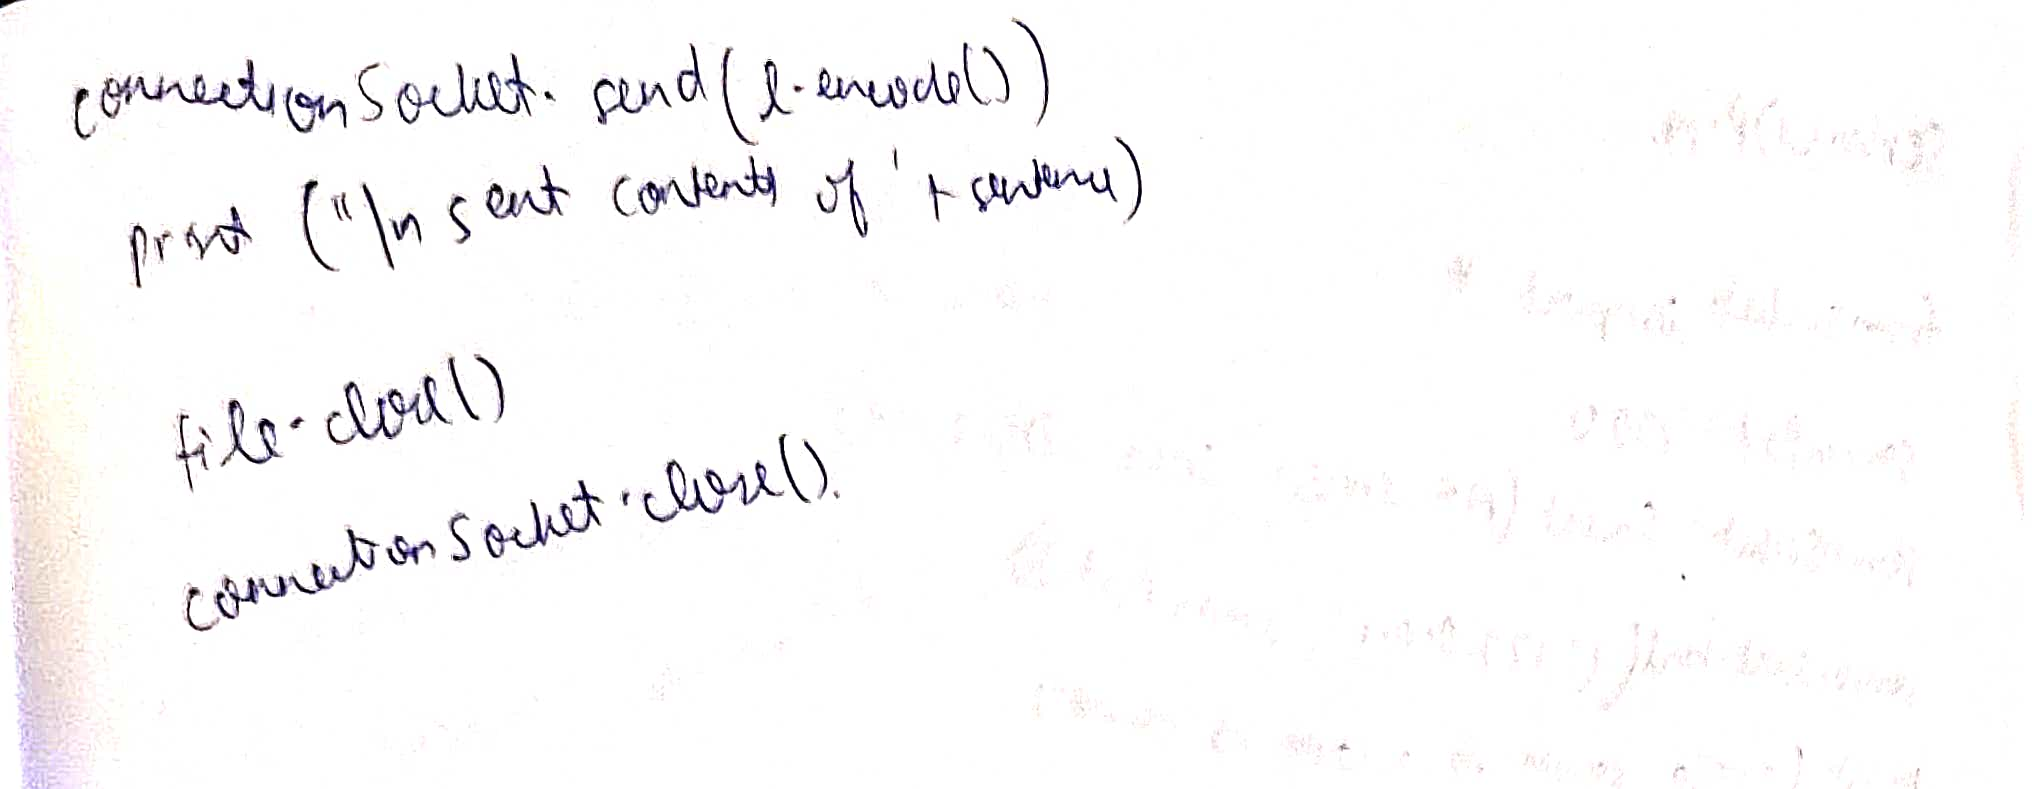 connectionSocket.send(l.encode())
print ("\n sent contents of ' + sentence)
file.close()
connectionSocket.close().